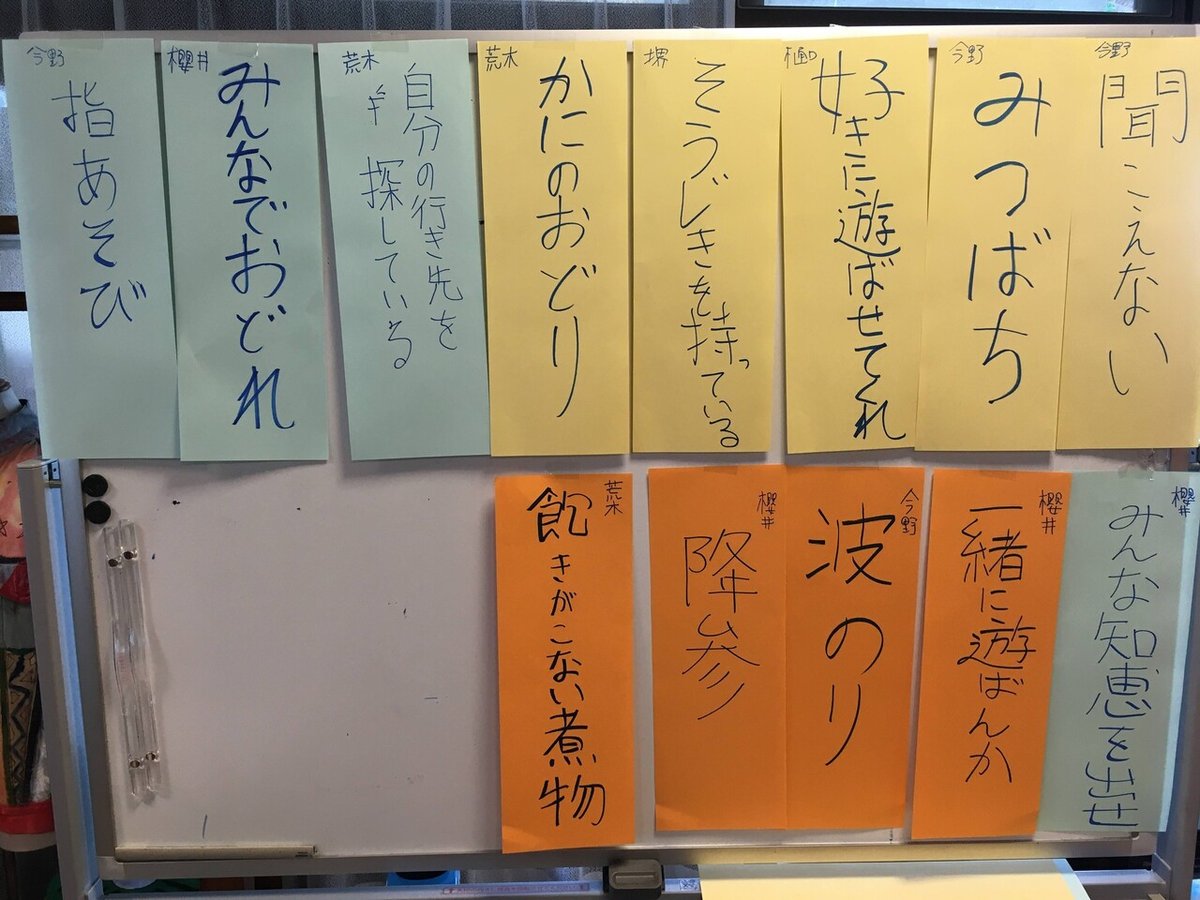 今野
聞こえない
今野
みつばち
樋口
好きに遊ばせてくれ
堺
そうじきを持っている
荒木
かにのおどり
荒木
自分の行き先を
探している
櫻井
みんなでおどれ
今野
指あそび
櫻井
みんな知恵を出せ
櫻井
一緒に遊ばんか
今野
波のり
櫻井
降参
荒木
飽きがこない煮物